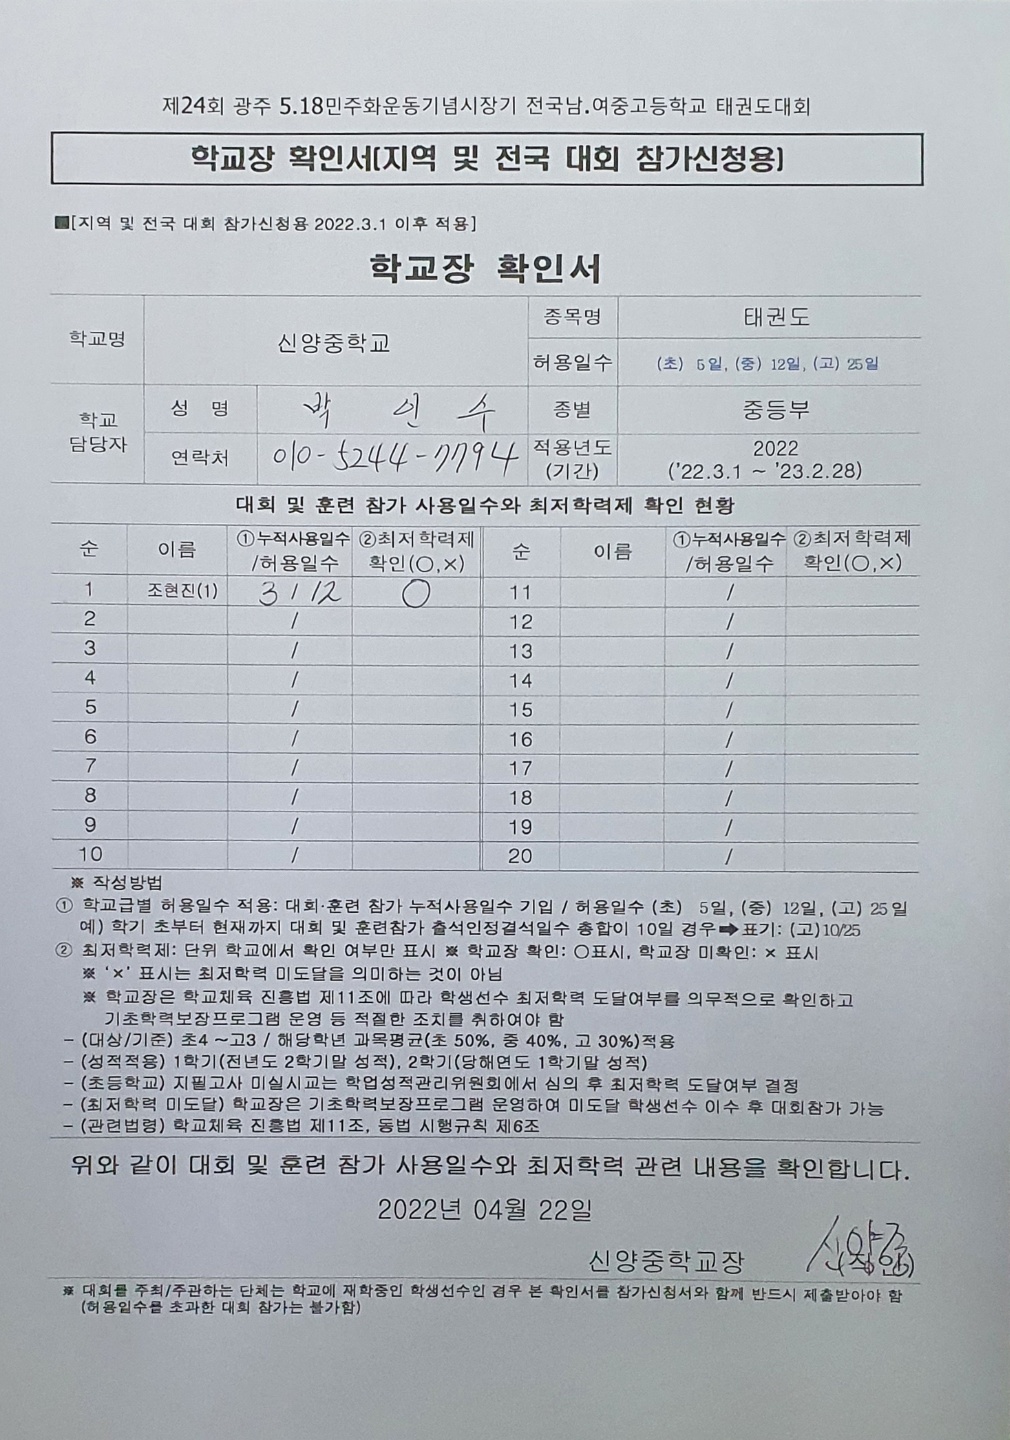 제24회 광주 5.18민주화운동기념시장기 전국남.여중고등학교 태권도대회
학교장 확인서(지역 및 전국 대회 참가신청용)
■[지역 및 전국 대회 참가신청용 2022.3.1 이후 적용]
학교장 확인서
학교명 신양중학교 종목명 태권도
허용일수 (초) 5일, (중) 12일, (고) 25일
학교 담당자 성 명 박 인 수 종별 중등부
연락처 010-5244-7794 적용년도 (기간) 2022 ('22.3.1 ~ '23.2.28)
대회 및 훈련 참가 사용일수와 최저학력제 확인 현황
순 이름 ①누적사용일수 /허용일수 ②최저학력제 확인(○,×) 순 이름 ①누적사용일수 /허용일수 ②최저학력제 확인(○,×)
1 조현진(1) 3 / 12 ○ 11 /
2 / 12 /
3 / 13 /
4 / 14 /
5 / 15 /
6 / 16 /
7 / 17 /
8 / 18 /
9 / 19 /
10 / 20 /
※ 작성방법
① 학교급별 허용일수 적용: 대회·훈련 참가 누적사용일수 기입 / 허용일수 (초) 5일, (중) 12일, (고) 25일
예) 학기 초부터 현재까지 대회 및 훈련참가 출석인정결석일수 총합이 10일 경우➡표기: (고)10/25
② 최저학력제: 단위 학교에서 확인 여부만 표시 ※ 학교장 확인: ○표시, 학교장 미확인: × 표시
※ '×' 표시는 최저학력 미도달을 의미하는 것이 아님
※ 학교장은 학교체육 진흥법 제11조에 따라 학생선수 최저학력 도달여부를 의무적으로 확인하고
기초학력보장프로그램 운영 등 적절한 조치를 취하여야 함
- (대상/기준) 초4 ~고3 / 해당학년 과목평균(초 50%, 중 40%, 고 30%)적용
- (성적적용) 1학기(전년도 2학기말 성적), 2학기(당해연도 1학기말 성적)
- (초등학교) 지필고사 미실시교는 학업성적관리위원회에서 심의 후 최저학력 도달여부 결정
- (최저학력 미도달) 학교장은 기초학력보장프로그램 운영하여 미도달 학생선수 이수 후 대회참가 가능
- (관련법령) 학교체육 진흥법 제11조, 동법 시행규칙 제6조
위와 같이 대회 및 훈련 참가 사용일수와 최저학력 관련 내용을 확인합니다.
2022년 04월 22일
신양중학교장 (직인)
※ 대회를 주최/주관하는 단체는 학교에 재학중인 학생선수인 경우 본 확인서를 참가신청서와 함께 반드시 제출받아야 함
(허용일수를 초과한 대회 참가는 불가함)